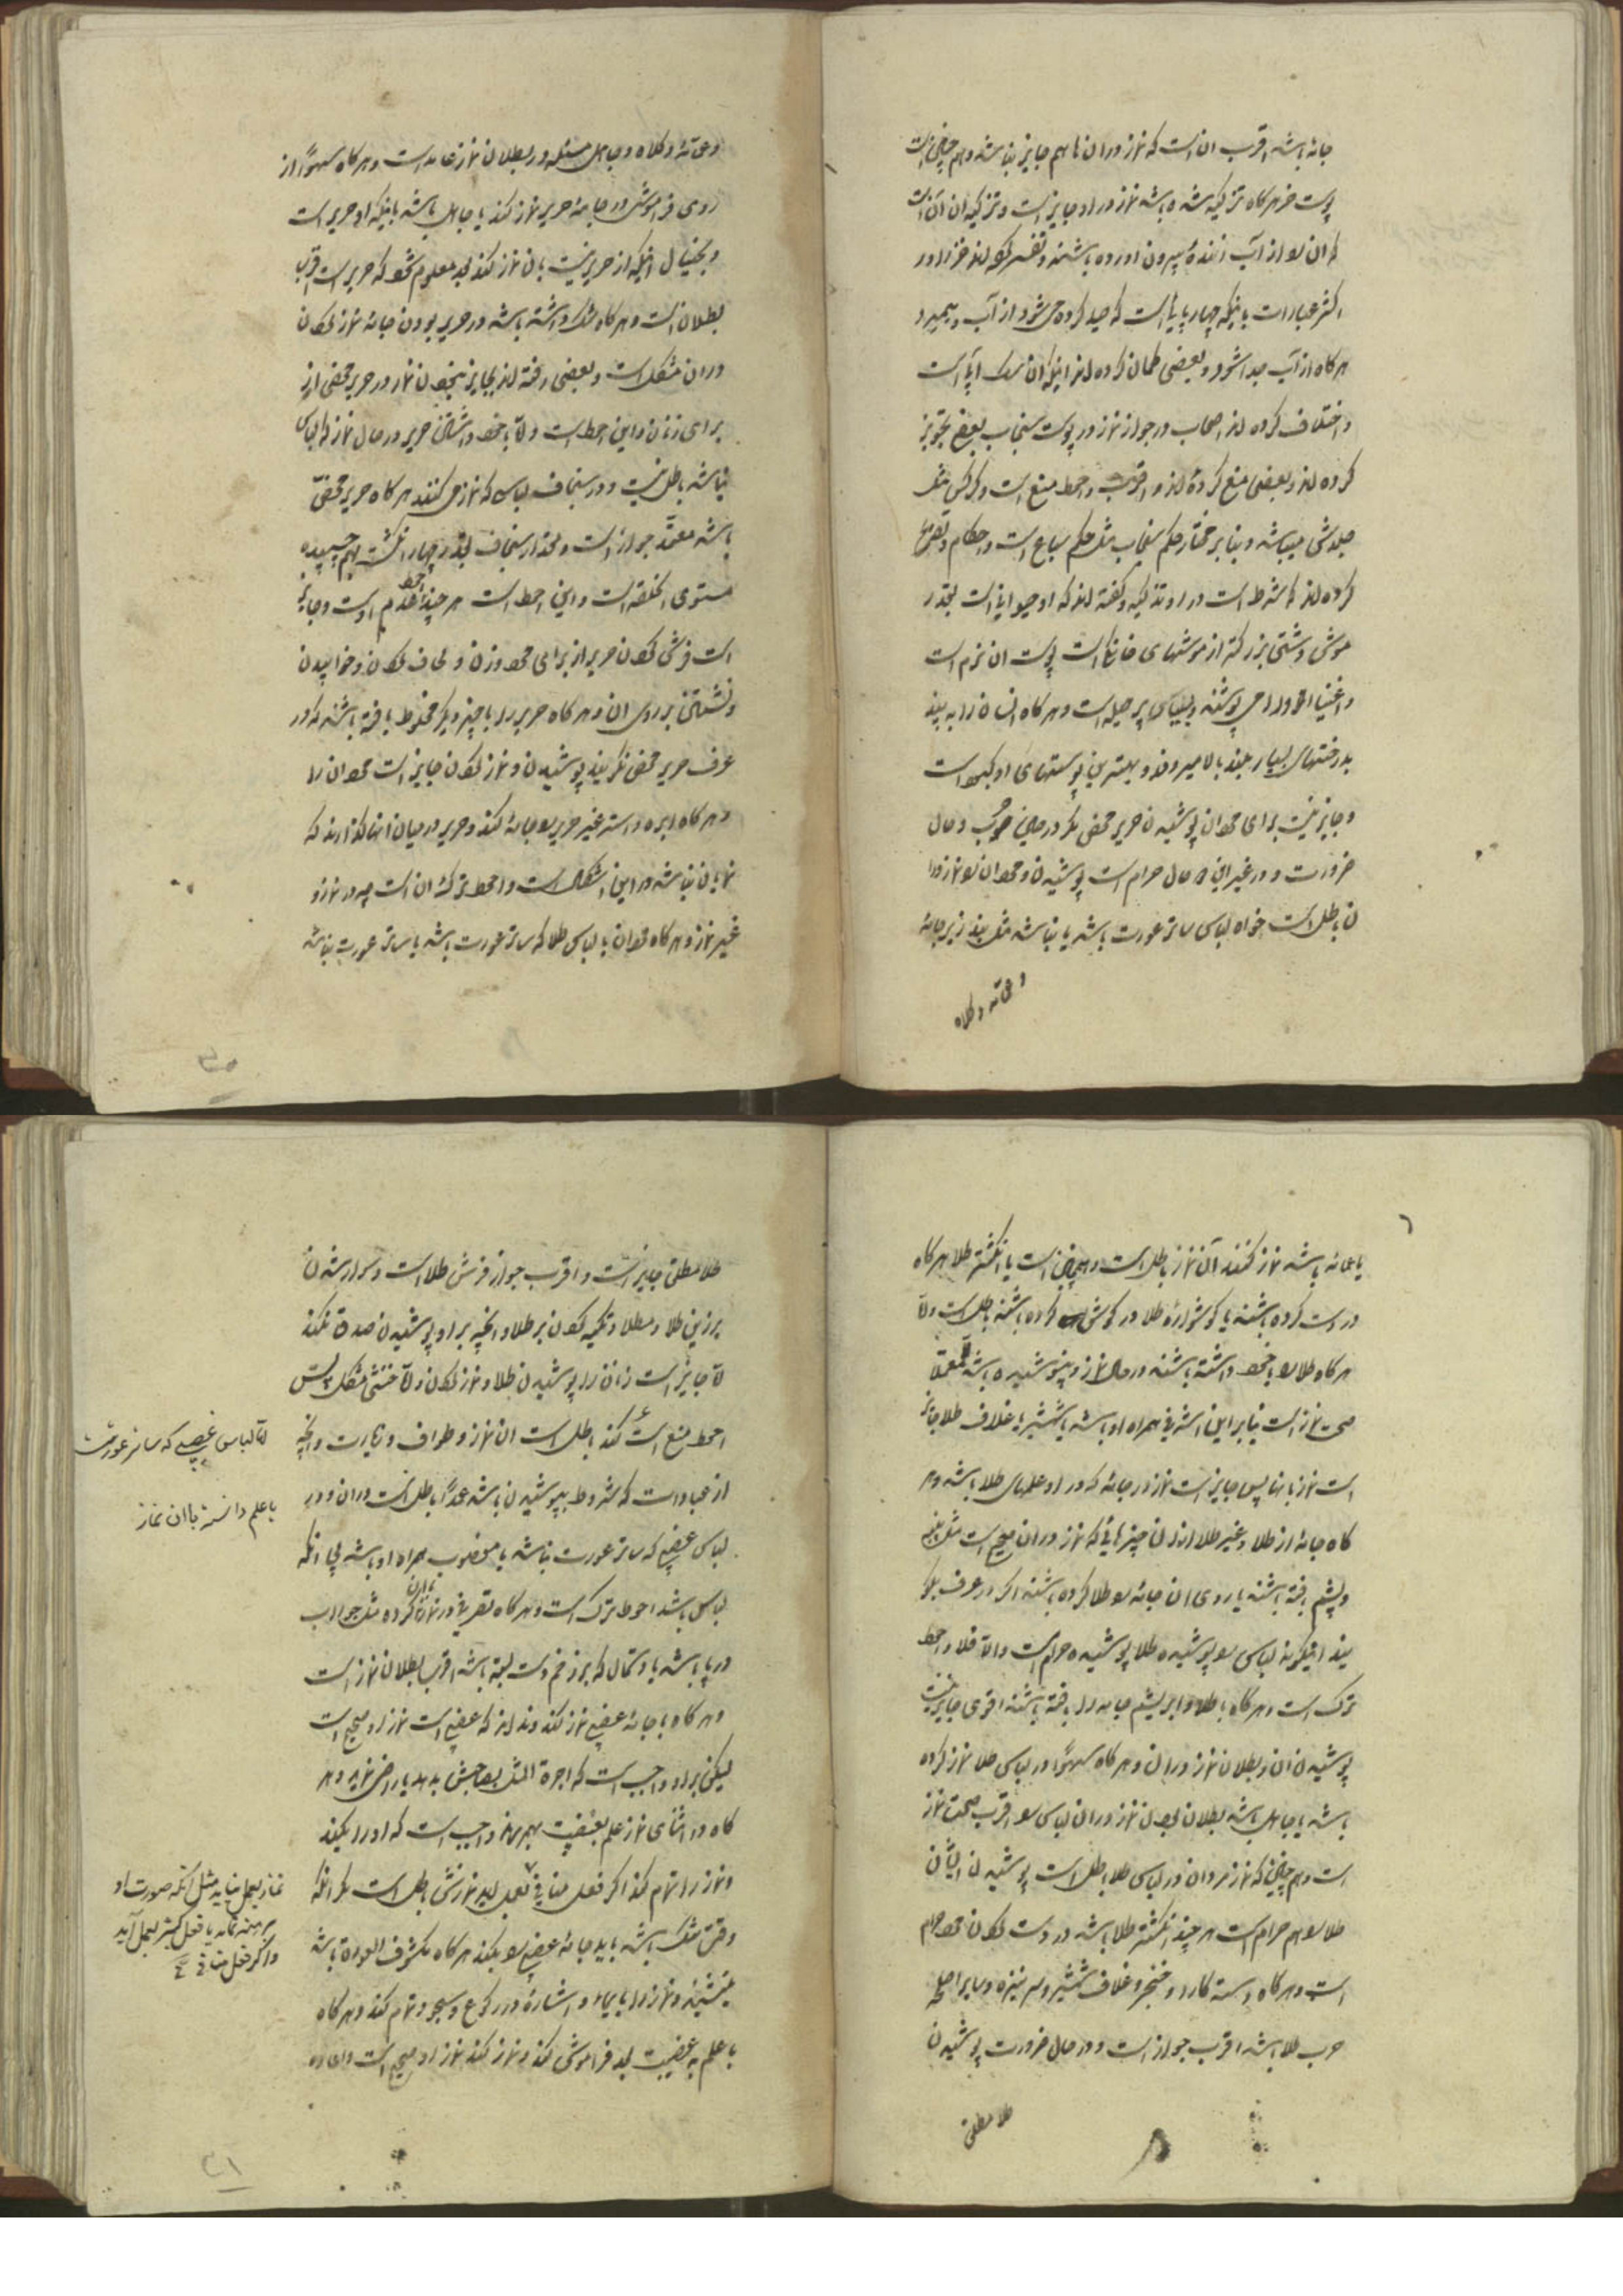 جامه باشد اقرب ان است که نماز در ان ها هم جایز نباشد و هم چنین است
پوست خز هر گاه تزکیه شده باشد نماز در او جایز است و تزکیه ان آن است
که ان را از آب زنده بیرون اورده باشند و تفسیر کرده اند خز را در
اکثر عبارات باینکه چهار پایی است که صید کرده می شود از آب و میمیرد
هر گاه از آب جدا شود و بعضی گمان کرده اند اینکه ان سک آبی است
و اختلاف کرده اند اصحاب در جواز نماز در پوست سنجاب بعضی تجویز
کرده اند و بعضی منع کرده اند و اقرب و احوط منع است و کرکس
جلدش میباشد و بنا بر مختار حکم سنجاب مثل حکم سباع است و احکام
کرده اند که شرط است در او تذکیه و گفته اند که او حیوانی است بقدر
موش دشتی بزرکتر از موشهای خانکی است پوست ان نرم است
و اغنیا او را می پوشند و بسیار پر حیله است و هر گاه انسان را به بیند
بدرختهای بسیار بلند بالا میرود و بهترین پوستهای او کبود است
و جایز نیست برای مردان پوشیدن حریر محض مکر در حین حرب و حال
ضرورت و در غیر این دو حال حرام است پوشیدن و مردان را نماز در ا
ن باطل است خواه لباس ساتر عورت باشد یا نباشد مثل بند زیر جامه
و عمامه و کلاه
و عمامه و کلاه و جاهل مسئله در بطلان نماز عامد است و هر گاه سهوًا از
روی فراموشی در جامه حریر نماز کند یا جاهل باشد باینکه او حریر است
و بخیال اینکه از حریر نیست با ان نماز کند بعد معلوم شود که حریر است اقرب
بطلان است و هر گاه شک داشته باشد در حریر بودن جامه نماز کردن
در ان مشکل است و بعضی رفته اند بجایز نبودن نماز در حریر محض از
برای زنان و این احوط است و الا با خود داشتن حریر در حال نماز که لباس
نباشد باطل نیست و در سنجاف لباس که نماز می کنند هر گاه حریر محض
باشد معتمد جواز است و مقدار سنجاف بقدر چهار انگشت بهم چسپیده
مستوی الخلقه است و این احوط است هر چند احوط عدم اوست و جایز
است فرش کردن حریر از برای مردان و زن و لحاف کردن و خوابیدن
و نشستن بر روی ان و هر گاه حریر را با چیز دیکر مخلوط بافته باشند که در
عرف حریر محض نگویند پوشیدن و نماز کردن جایز است مردان را
و هر گاه ابره و استر غیر حریر را جامه کنند و حریر در میان انها گذارند که
نمایان نباشد در این اشکال است و احوط ترک ان است چه در نماز و
غیر نماز و هر گاه مردان با لباس طلا که ساتر عورت باشد یا ساتر عورت نباشد
یا عمامه باشد نماز کنند آن نماز باطل است و همچنین است با انگشتر طلا هر گاه
در دست کرده باشند یا گوشواره طلا در گوش کرده باشند باطل است و الا
هر گاه طلا را با خود داشته باشند در حال نماز و نپوشیده باشد
صحت نماز است بنا بر این اشرفی همراه او باشد یا شمشیر با غلاف طلا جایز
است نماز با انها پس جایز است نماز در جامه که در او علمهای طلا باشد و هر
گاه جامه از طلا و غیر طلا از ان چیزهایی که نماز در ان صحیح است مثل پنبه
و پشم بافته باشند یا روی ان جامه را طلا کرده باشند اگر در عرف بگو
یند اینگونه لباس را پوشیده طلا پوشیده حرام است و الا فلا و احوط
ترک است و هر گاه با طلا و ابریشم جامه را بافته باشند اقوی جایز نیست
پوشیدن ان و بطلان نماز در ان و هر گاه سهوًا در لباس طلا نماز کرده
باشد یا جاهل باشد بطلان بودن نماز در ان لباس را اقرب صحت نماز
است و هم چنین که نماز مردان در لباس طلا باطل است پوشیدن ایشان
طلا را هم حرام است هر چند انگشتر طلا باشد در دست کردن مرد حرام
است و هر گاه دسته کارد و خنجر و غلاف شمشیر و سر نیزه و سایر اسلحه
حرب طلا باشد اقرب جواز است و در حال ضرورت پوشیدن
طلا مطلق
طلا مطلق جایز است و اقرب جواز فرش طلا است و سوار شدن
بر زین طلا و مطلا و تکیه کردن بر طلا و انچه بر او پوشیدن صدق نکند
و الا جایز است زنان را پوشیدن طلا و نماز کردن و الا خنثی مشکل پس
احوط منع است کند باطل است ان نماز و طواف و زیارت و انچه
از عبادات که مشروط بپوشیدن باشد عمدًا باطل است در ان و در
لباس غصبی که ساتر عورت نباشد یا مغصوب همراه او باشد بی انکه
لباس باشد احوط ترک است و هر گاه تقریبی در نماز با ان کرده مثل جوراب
در پا باشد یا دستمال که بر زخم دست بسته باشد اقرب بطلان نماز است
و هر گاه با جامه غصبی نماز کند و نداند که غصبی است نماز او صحیح است
لیکن بر او واجب است که اجرة المثل بصاحبش بدهد یا راضی نماید و هر
گاه در اثنای نماز علم بغصبیت بهم رساند واجب است که او را بکند
و نماز را تمام کند اگر فعل منافی بعمل اید نمازش باطل است مکر انکه
وقت تنک باشد باید جامه غصبی را بکند هر گاه مکشوف العورة باشد
بنشیند و نماز را با ایماء و اشاره در رکوع و سجود تمام کند و هر گاه
با علم به غصبیت بعد فراموش کند و نماز کند نماز او صحیح است و اعاده
اما لباس غصبی که ساتر عورت
با علم دانسته با ان نماز
نماز بعمل نیاید مثل انکه صورت او
برهنه نماید یا فعل کثیر بعمل آید
و اگر فعل منافی